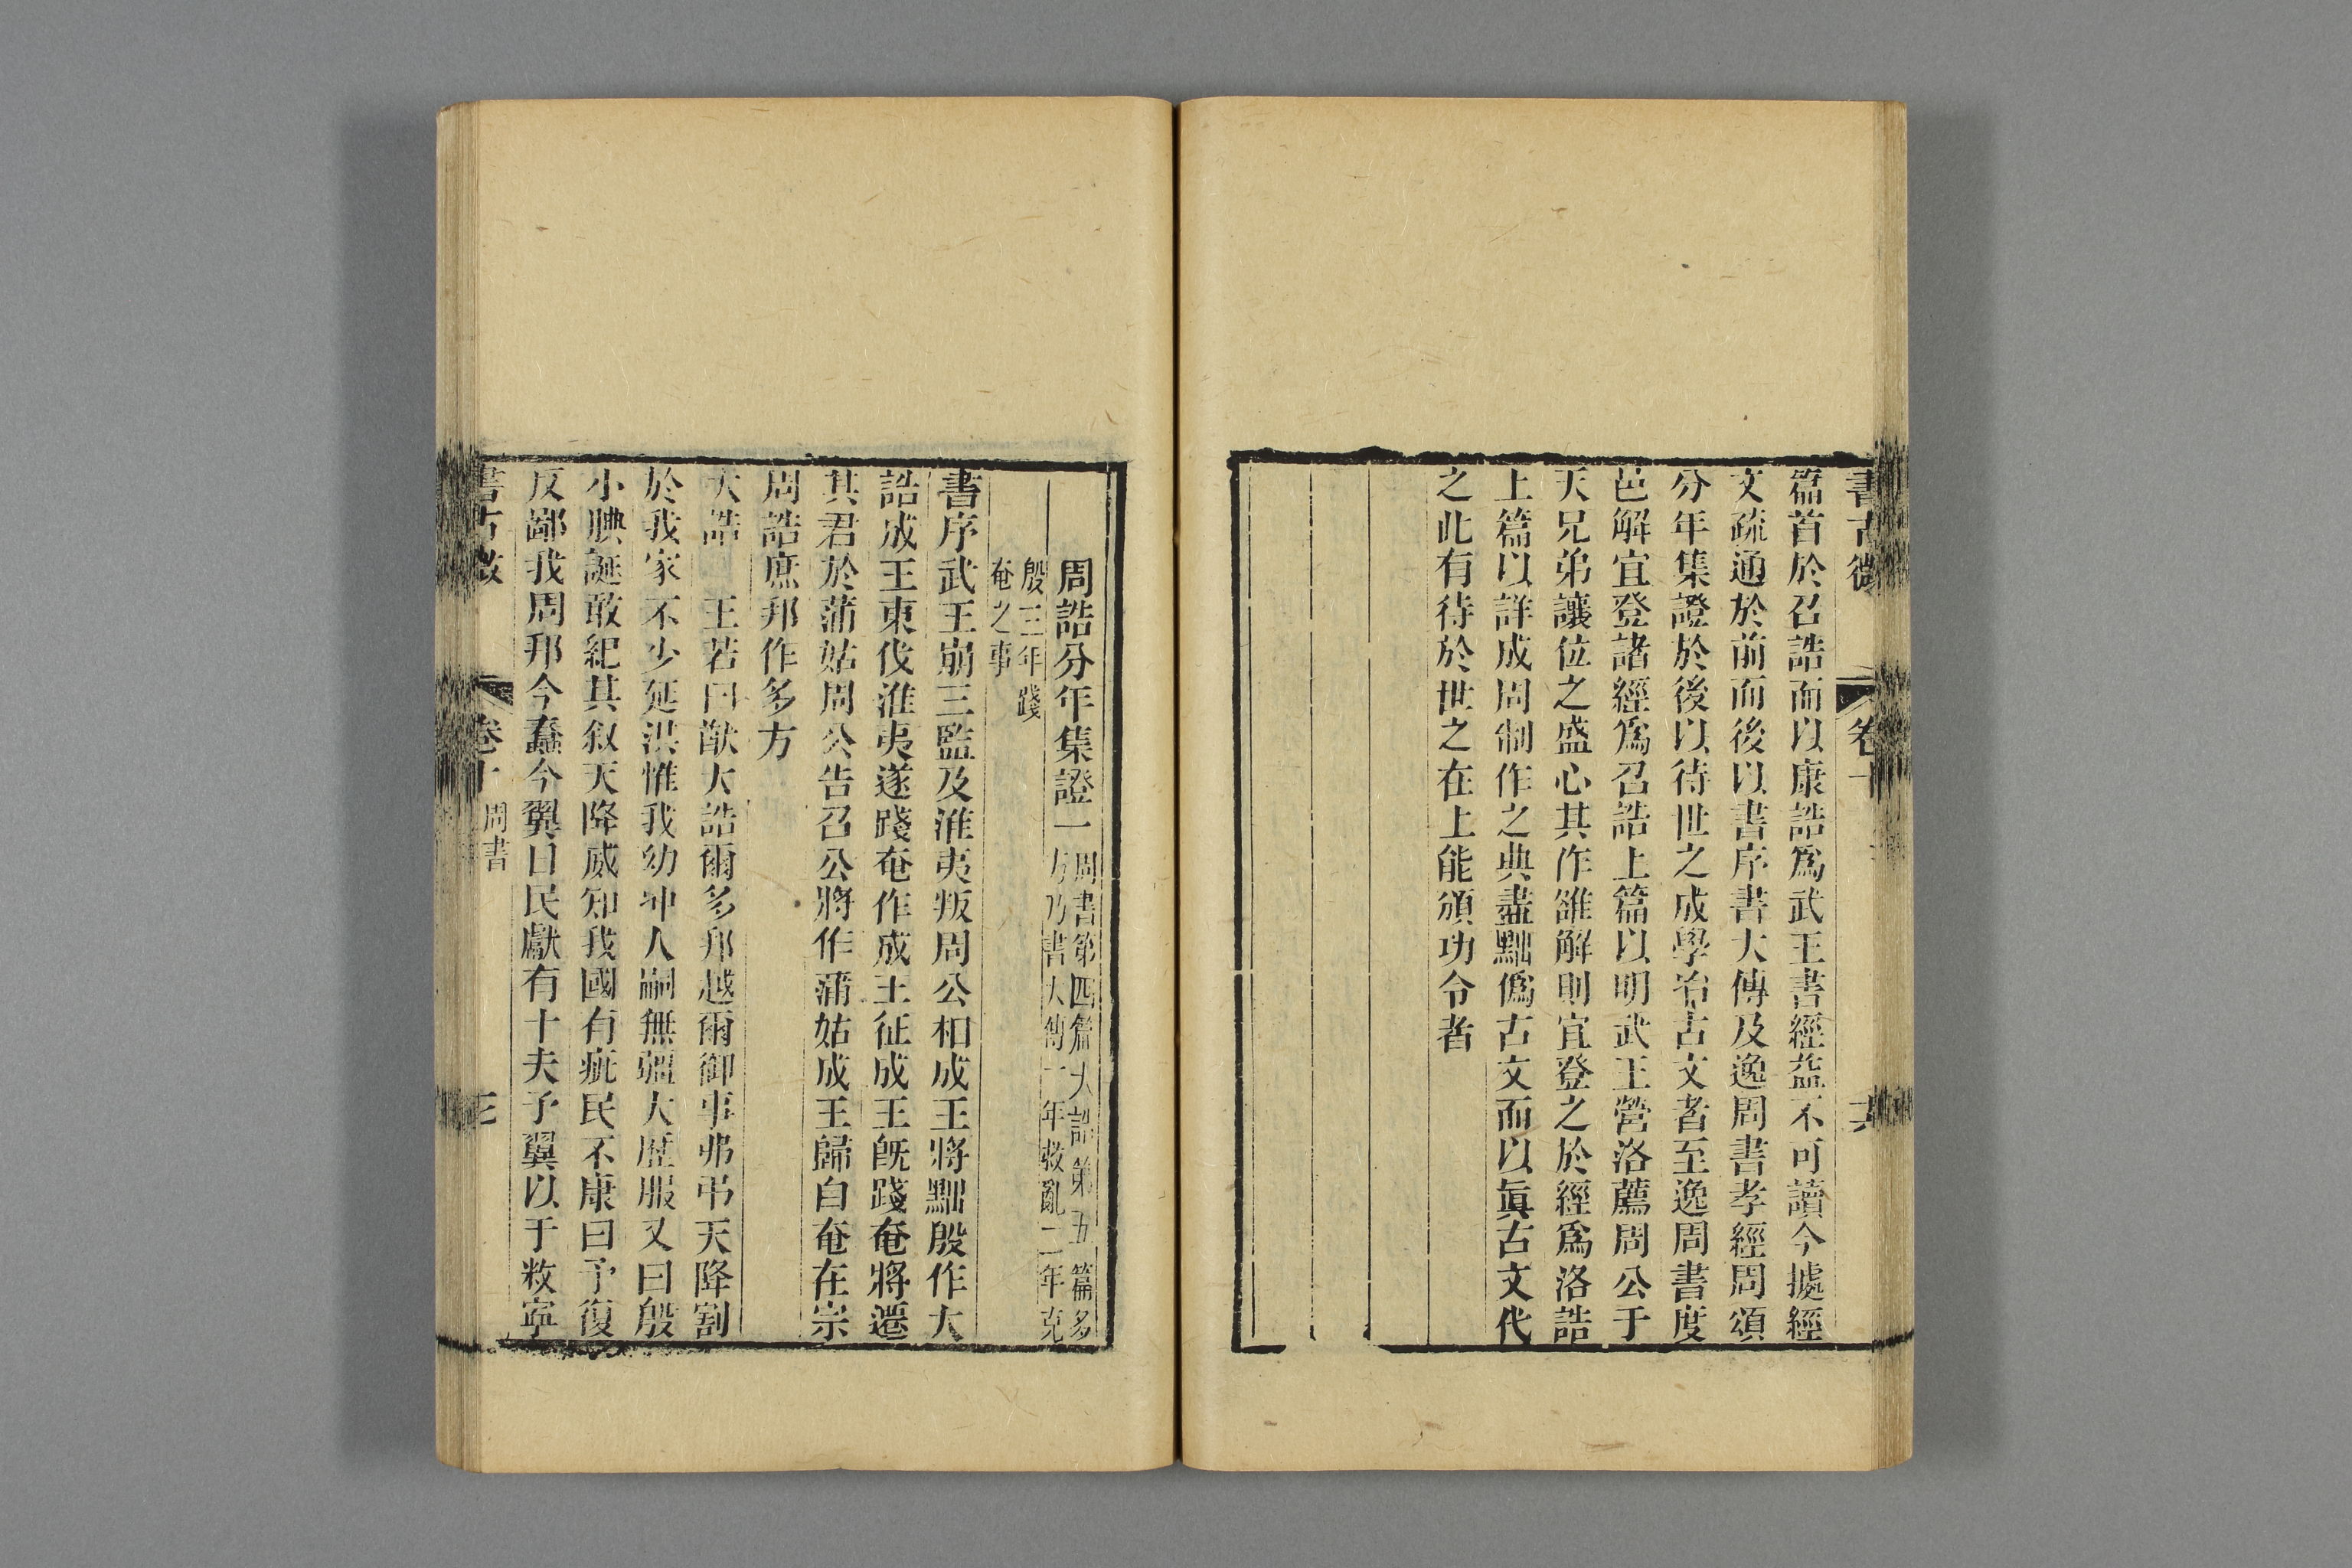 書古微
卷十
六
篇首於召誥而以康誥爲武王書經益不可讀今據經
文疏通於前而後以書序書大傳及逸周書孝經周頌
分年集證於後以待世之成學治古文者至逸周書度
邑解宜登諸經爲召誥上篇以明武王營洛薦周公于
天兄弟讓位之盛心其作雒解則宜登之於經爲洛誥
上篇以詳成周制作之典盡黜僞古文而以眞古文代
之此有待於世之在上能頒功令者
周誥分年集證一
周書第四篇大誥第五篇多
方乃書大傳一年救亂二年克
殷三年踐
奄之事
書序武王崩三監及淮夷叛周公相成王將黜殷作大
誥成王東伐淮夷遂踐奄作成王征成王旣踐奄將遷
其君於蒲姑周公告召公將作蒲姑成王歸自奄在宗
周誥庶邦作多方
大誥 王若曰猷大誥爾多邦越爾御事弗弔天降割
於我家不少延洪惟我幼冲人嗣無疆大歷服又曰殷
小腆誕敢紀其叙天降威知我國有疵民不康曰予復
反鄙我周邦今蠢今翼日民獻有十夫予翼以于敉寧
書古微
卷十
周書